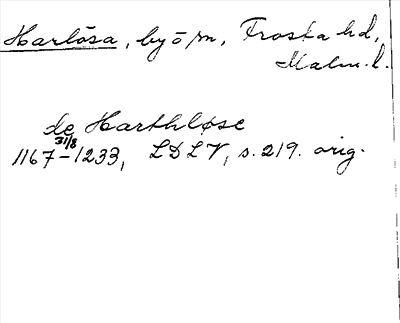 Harlösa, by o sn, Froska hd,
Malm. l.
de Harthløse
1167-31/8 1233, LDLV, s. 219. orig.